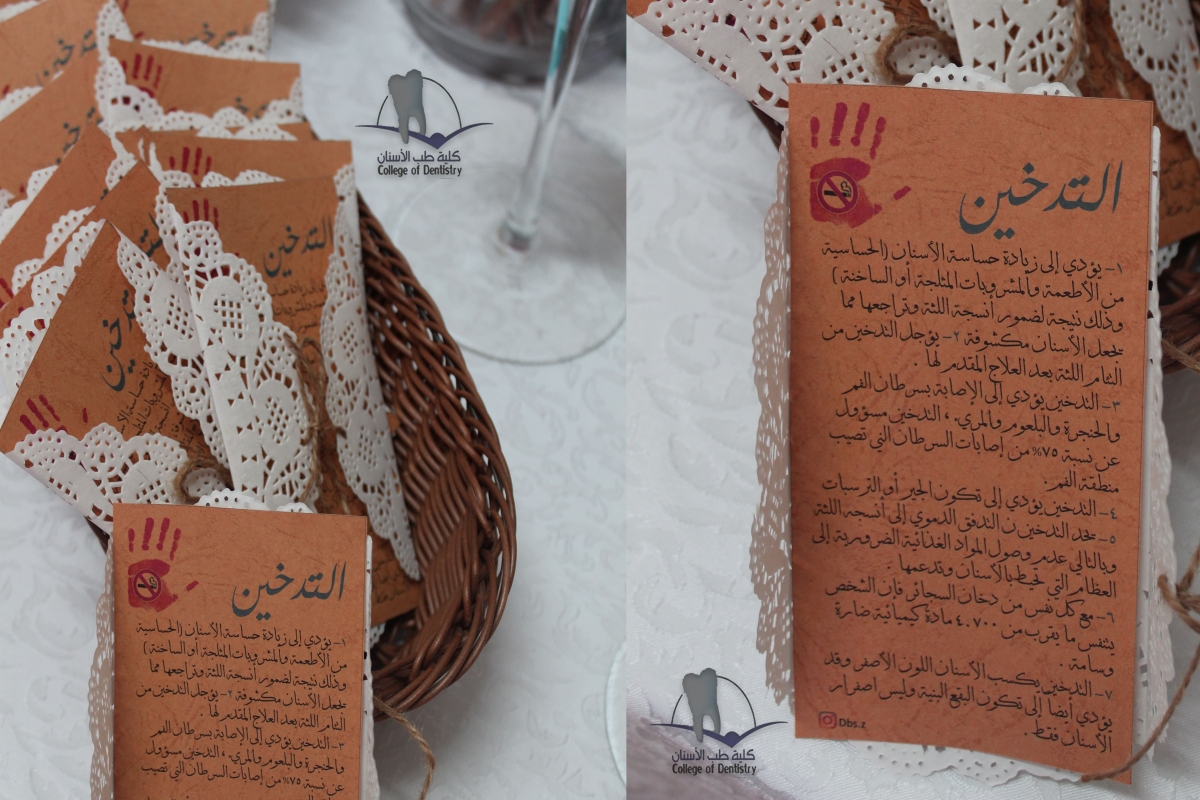 كلية طب الأسنان
College of Dentistry
التدخين
التدخين
التدخين
١- يؤدي إلى زيادة حساسة الأسنان (الحساسية
من الأطعمة والمشروبات المثلجة أو الساخنة )
وذلك نتيجة لضمور أنسجة اللثة وتراجعها مما
يجعل الأسنان مكشوفة ٢- يؤجل التدخين من
التئام اللثة بعد العلاج المقدم لها .
٣- التدخين يؤدي إلى الإصابة بسرطان الفم
والحنجرة والبلعوم والمريء ، التدخين مسؤول
عن نسبة ٧٥% من إصابات السرطان التي تصيب
التدخين
١- يؤدي إلى زيادة حساسة الأسنان (الحساسية
من الأطعمة والمشروبات المثلجة أو الساخنة )
وذلك نتيجة لضمور أنسجة اللثة وتراجعها مما
يجعل الأسنان مكشوفة ٢- يؤجل التدخين من
التئام اللثة بعد العلاج المقدم لها .
٣- التدخين يؤدي إلى الإصابة بسرطان الفم
والحنجرة والبلعوم والمريء ، التدخين مسؤول
عن نسبة ٧٥% من إصابات السرطان التي تصيب
منطقة الفم.
٤- التدخين يؤدي إلى تكون الجير أو الترسبات
٥- يحد التدخين ن التدفق الدموي إلى أنسجة اللثة
وبالتالي عدم وصول المواد الغذائية الضرورية إلى
العظام التي تحيط بالأسنان وتدعمها .
٦- مع كل نفس من دخان السجائر فإن الشخص
يتنفس ما يقرب من ٤,٧٠٠ مادة كيميائية ضارة
وسامة .
٧- التدخين يكسب الأسنان اللون الأصفر وقد
يؤدي أيضا إلى تكون البقع البنية وليس اصفرار
الأسنان فقط .
Dbs.z
كلية طب الأسنان
College of Dentistry